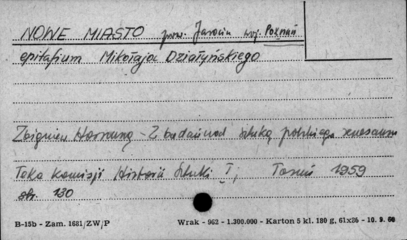 NOWE MIASTO pow. Jarocin woj. Poznań
epitafium Mikołaja Działyńskiego
Zbigniew Hornung - Z badań nad sztuką polskiego renesansu
Teka Komisji Historii Sztuki I, Toruń 1959
str. 130
B-15b - Zam. 1681/ZW/P Wrak - 962 - 1.200.000 - Karton 5 kl. 180 g, 61x86 - 10. 9. 60